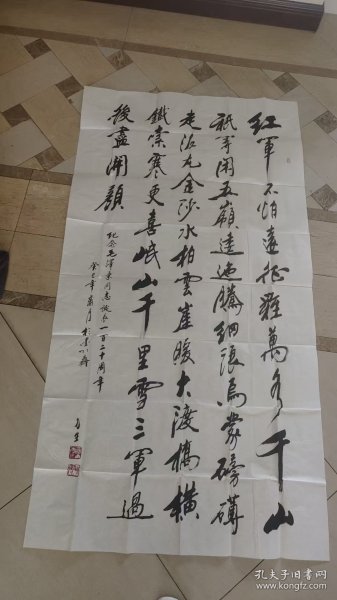 红軍不怕遠征難萬水千山
祇等闲五嶺逶迤騰細浪烏蒙磅礴
走泥丸金沙水拍雲崖暖大渡橋橫
鐵索寒更喜岷山千里雪三軍過
後盡開顏
纪念毛澤東同志诞辰一百二十周年
癸巳年
孔夫子旧书网